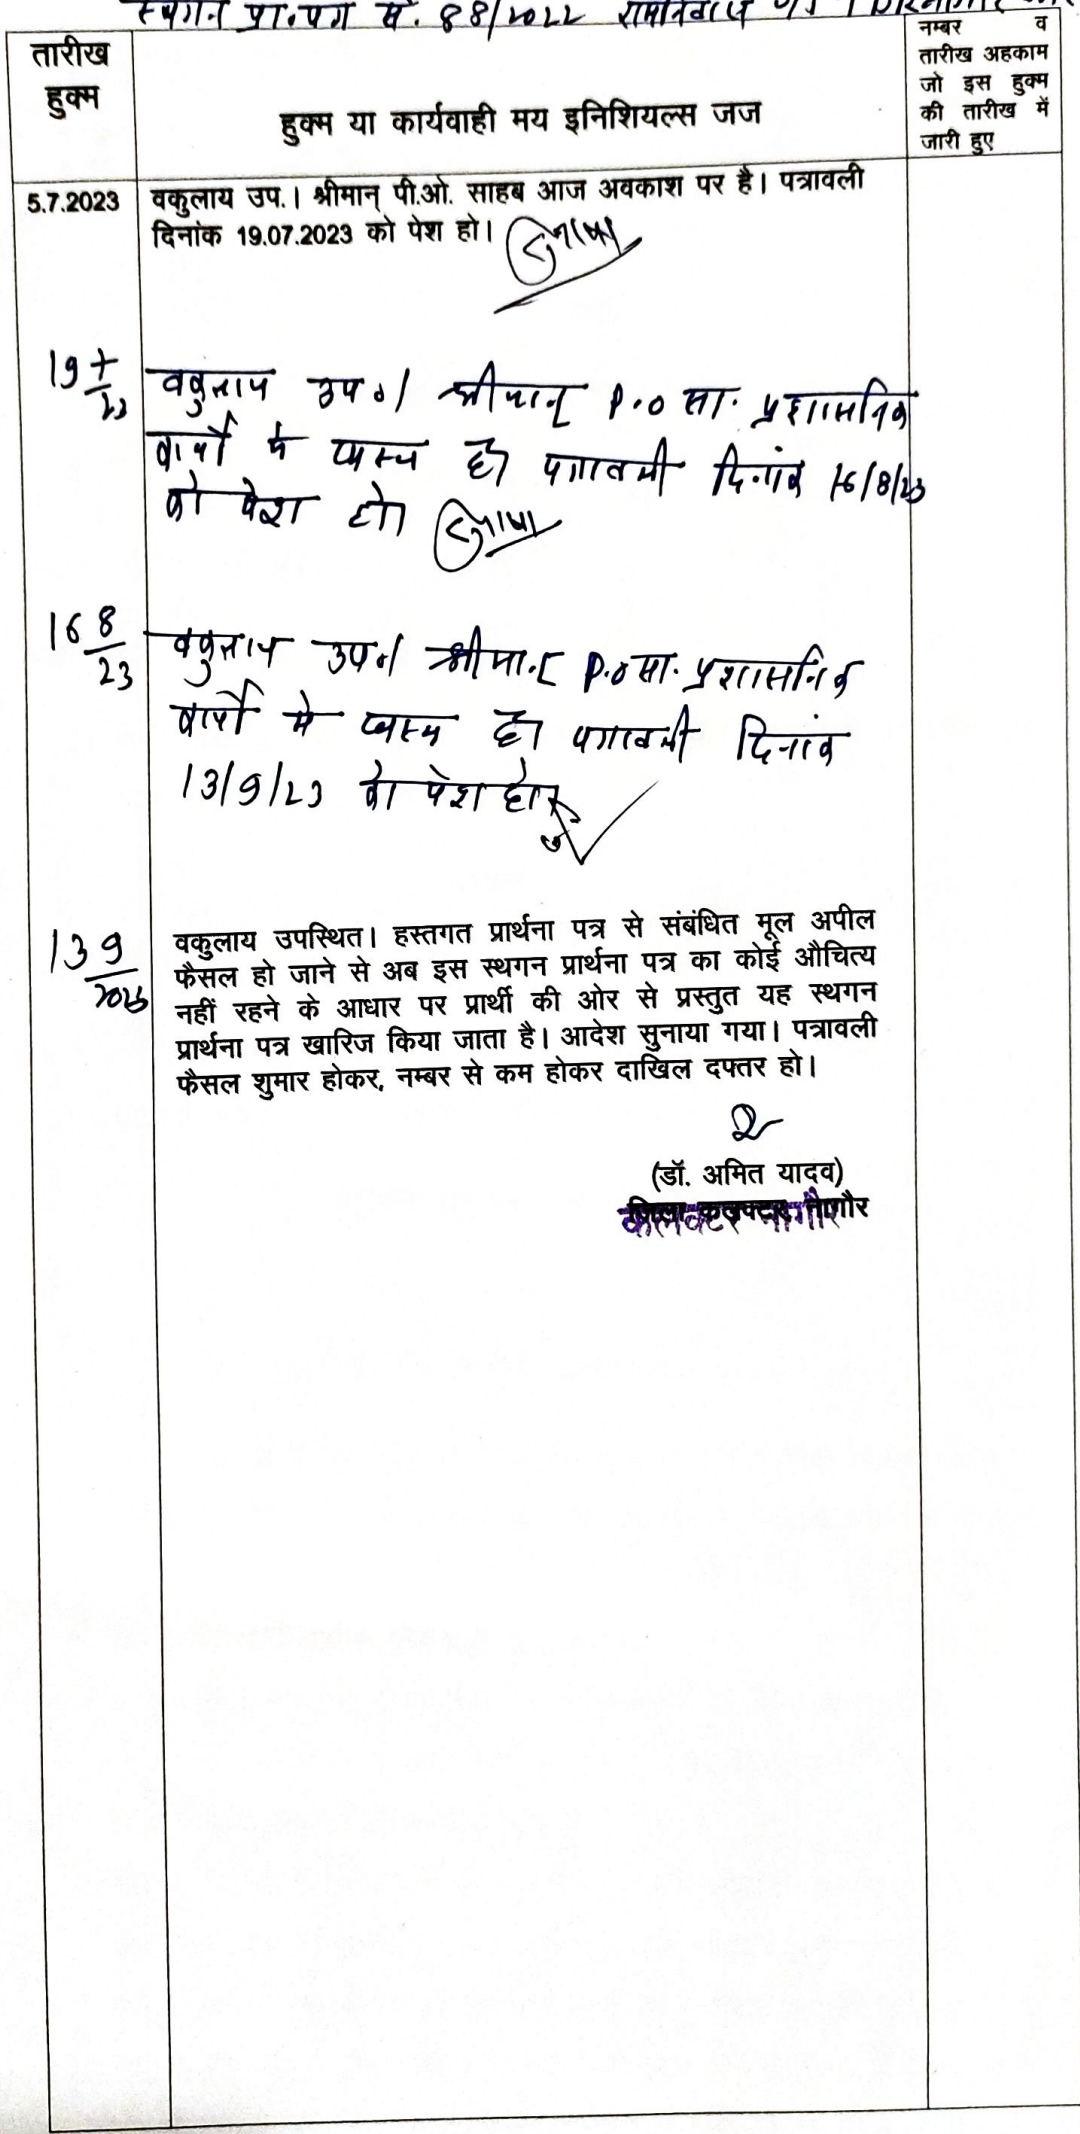 स्थगन प्रा.पत्र सं. 88/2022 रामनिवास
तारीख
हुक्म
हुक्म या कार्यवाही मय इनिशियल्स जज
नम्बर व
तारीख अहकाम
जो इस हुक्म
की तारीख में
जारी हुए
5.7.2023 वकुलाय उप.। श्रीमान् पी.ओ. साहब आज अवकाश पर है। पत्रावली
दिनांक 19.07.2023 को पेश हो।
19 7/23 वकुलाय उप०। श्रीमान् P.O सा. प्रशासनिक
कार्यों में व्यस्त है। पत्रावली दिनांक 16/8/23
को पेश हो।
16 8/23 वकुलाय उप०। श्रीमान् P.O सा. प्रशासनिक
कार्यों में व्यस्त है। पत्रावली दिनांक
13/9/23 को पेश हो।
13 9/2023 वकुलाय उपस्थित। हस्तगत प्रार्थना पत्र से संबंधित मूल अपील
फैसल हो जाने से अब इस स्थगन प्रार्थना पत्र का कोई औचित्य
नहीं रहने के आधार पर प्रार्थी की ओर से प्रस्तुत यह स्थगन
प्रार्थना पत्र खारिज किया जाता है। आदेश सुनाया गया। पत्रावली
फैसल शुमार होकर, नम्बर से कम होकर दाखिल दफ्तर हो।
(डॉ. अमित यादव)
जिला कलक्टर, नागौर
कलक्टर नागौर